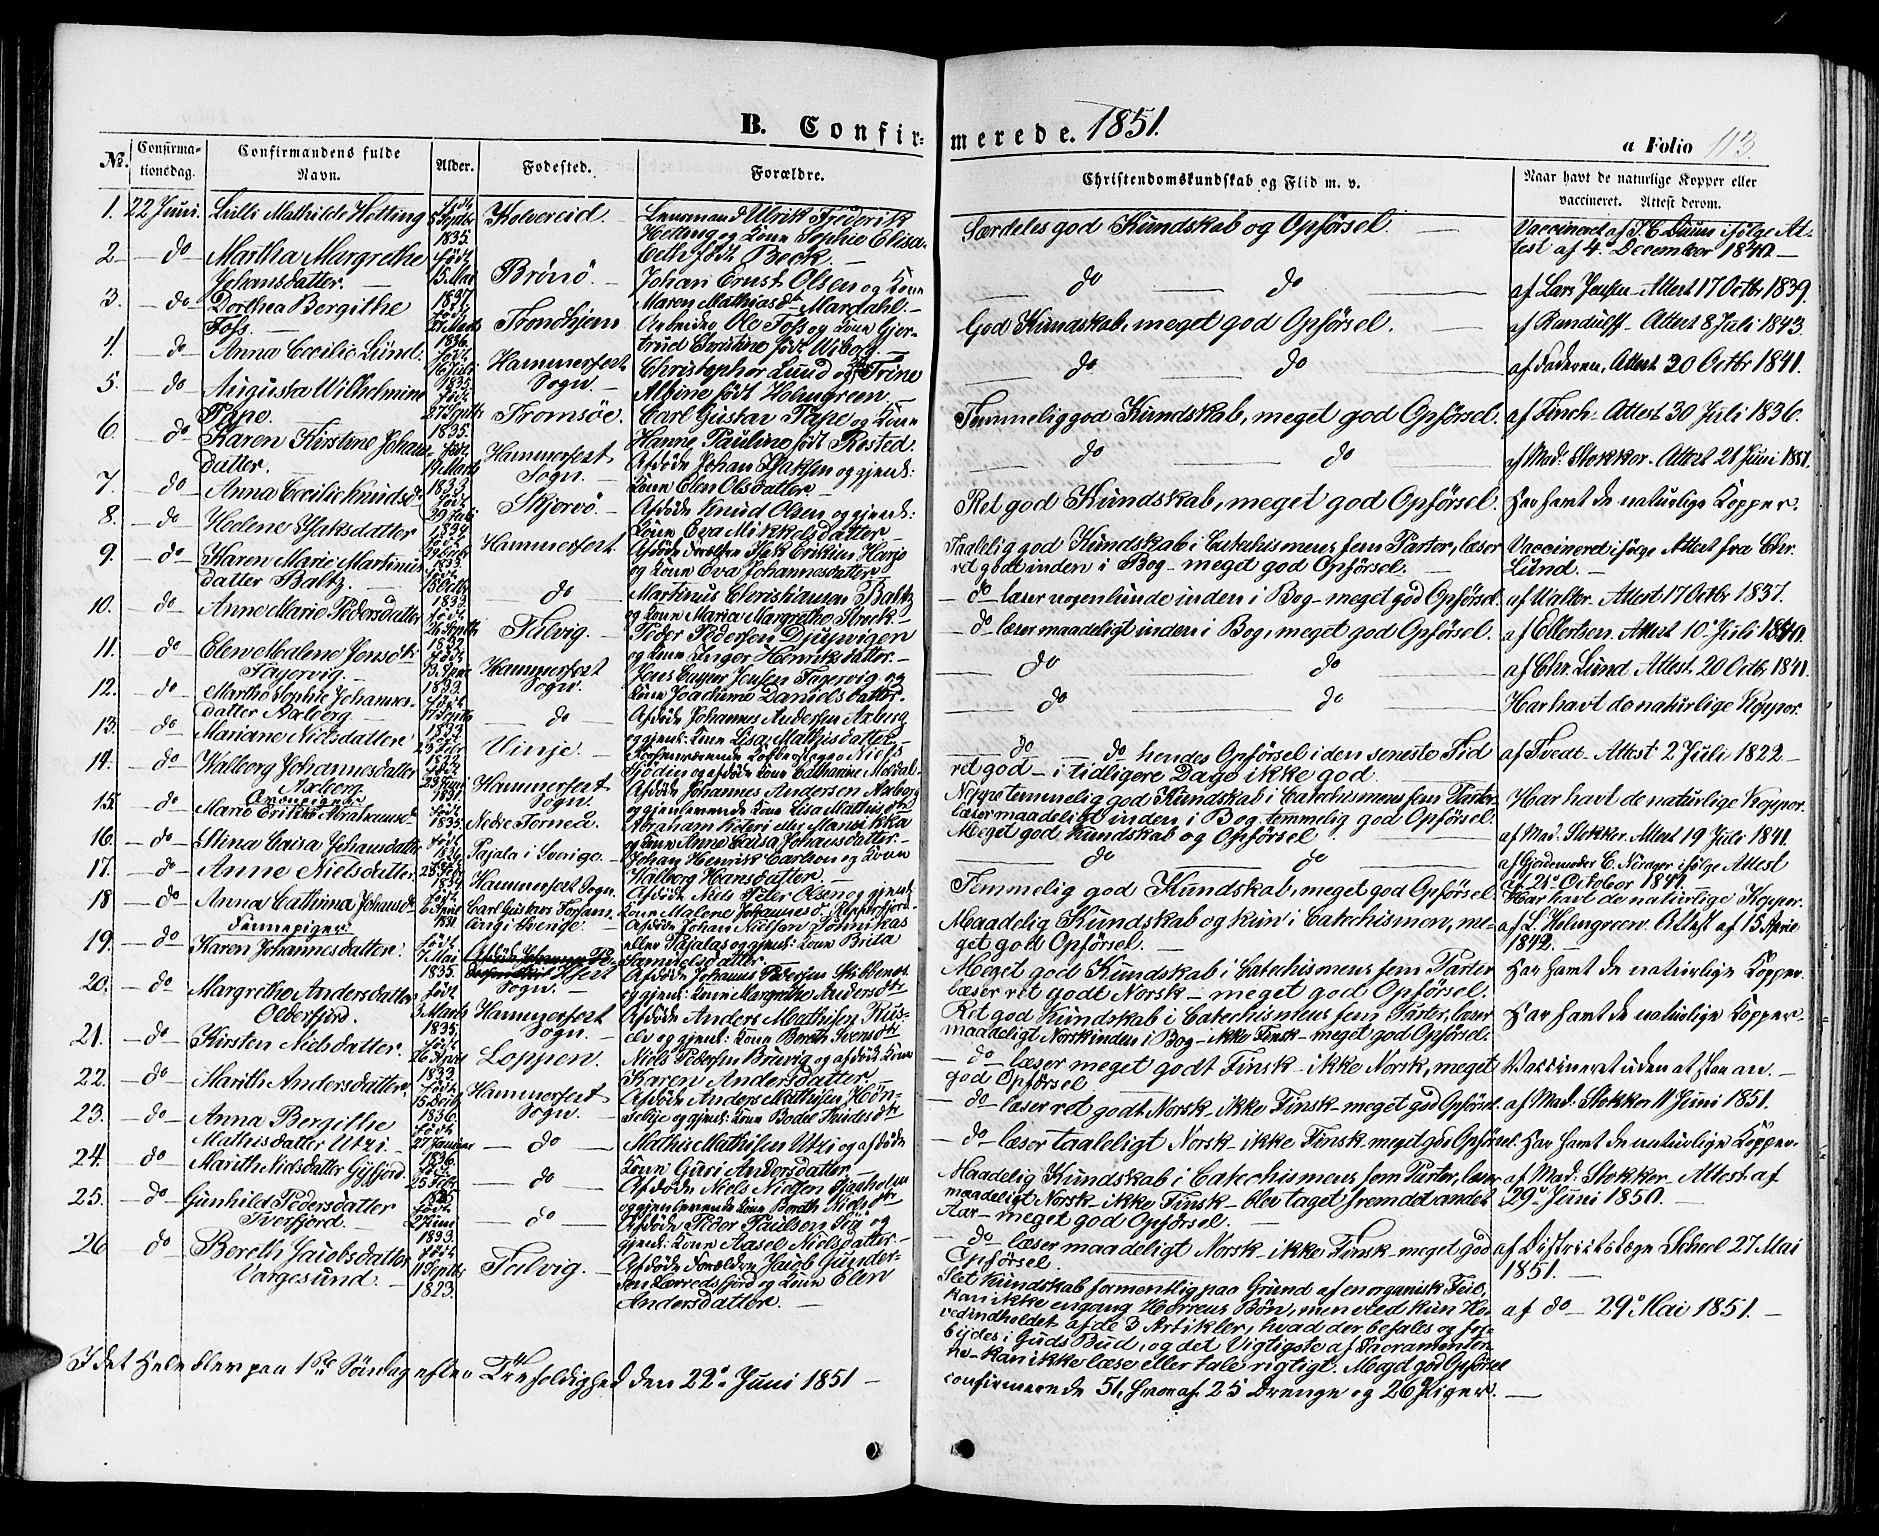 B. Confirmerede. 1851.
a Folio 113
No. Confirmationsdag. Confirmandens fulde Navn. Alder. Fødested. Forældre. Christendomskundskab og Flid m. v. Naar havt de naturlige Kopper eller vaccineret. Attest derom.
1. 22 Juni. Lulli Mathilde Hetting født Septbr 1835. Kolvereid. Lensmand Ulrik Frederik Hetting og Kone Sophie Elisabeth født Beck. Særdeles god Kundskab og Opførsel. Vaccinered af Duus ifølge Attest af 4de December 1840
2 do Martha Margrethe Johansdatter. født 15 Mai 1837 Brønö. Johan Ernst Olsen og Kone Maren Mathiasdtr Mardahl. do do af Lars Jensen Attest 17 Octbr 1839.
3. do Dorthea Bergithe Foss. født Marts 1836. Trondhjem Arbeider Ole Foss og Kone Gjertrud Christine født Wiborg. God Kundskab, meget god Opførsel. af Randulff Attest 8 Juli 1843.
4. do Anna Cecilie Lund. født 16 1835. Hammerfest Sogn. Christopher Lund og Trine Albine født Holmgreen do do af Faderen, Attest 20 Octbr 1841.
5. do Augusta Wilhelmine Pape. født 27 Septbr 1835. Tromsøe. Carl Gustav Pape og Kone Hanne Pauline født Rested. Temmelig god Kundskab, meget god Opførsel. af Finch. Attest 30 Juli 1836.
6. do Karen Kirstine Johansdatter. født 19 Marts 1833 Hammerfest Sogn. Afdøde Johan Isaksen og gjenl: Kone Elen Olsdatter do do af Mad: Stokker. Attest 21 Juni 1851.
7. do Anna Cecilie Knudsdtr født 20 1834 Skjervö. Afdøde Knud Olsen og gjenl: Kone Eva Mikkelsdatter Ret god Kundskab, meget god Opførsel. Har havt de naturlige Kopper.
8. do Helene Isaksdatter født 1833. Hammerfest Afdøde Forældre Isak Eriksen Harjo og Kone Eva Johannesdatter Taalelig god Kundskab i Catechismens fem Parter, læser ret godt inden i Bog meget god Opførsel. Vaccinered ifølge Attest fra Chr. Lund.
9. do Karen Marie Martinusdatter Baltz. født 18 Octbr 1833 do Martinus Christiansen Baltz og Kone Maren Margrethe Strøck. do læser nogenlunde inden i Bog meget god Opførsel. af Walter Attest 17 Octbr 1837.
10. do Anne Marie Pedersdatter født 26 Septbr 1834 Talvig. Peder Pedersen Djupvigen og Kone Inger Henriksdatter. do læser maadeligt inden i Bog, meget god Opførsel. af Ellertsen. Attest 10de Juli 1840.
11. do Elen Malene Jensdtr Fagervig. født 13 1833. Hammerfest Sogn. Jens Casper Jensen Fagervig og Kone Joachime Danielsdatter. do do af Chr. Lund Attest 20 Octbr 1841.
12. do Marthe Sophie Johannesdatter Axberg født 17 Septbr 1833 do Afdøde Johannes Andersen Axberg og gjenl: Kone Lisa Mathisdatter do do Har havt de naturlige Kopper.
13. do Mariane Nielsdatter født 25 1822 Vinje. og afdøde Kone Catharine do do hendes Opførsel i den seneste Tid ret god i tidligere Dage ikke god af Tvedt Attest 2 Juli 1822
14. do Walborg Johannesdatter Axberg født 23 1834 Hammerfest Sogn. Afdøde Johannes Andersen Axberg og gjenlevende Kone Lisa Mathisdtr Neppe temmelig god Kundskab i Catechismens fem Parter læser maadeligt inden i Bog temmelig god Opførsel. Har havt de naturlige Kopper.
15. do Marie Erikke Abrahamsd. 1835 Nedre Torneå. Abraham Kateri eller Mansikka og Kone Anne Caisa Johansdatter. Meget god Kundskab og Opførsel af Mad. Stokker Attest 19 Juli 1841.
16. do Stina Caisa Johansdatter 1836 Pajala i Sverige. Johan Henrik Carlson og Kone Walborg Hansdatter. do do af Gjordemoder C. Norager ifølge Attest 21de October 1847.
17. do Anne Nielsdatter 25 1834 Hammerfest Sogn. Afdøde Niels Peter Olsen og gjenl: Kone Malene Johannesd. Repperfjord Temmelig god Kundskab, meget god Opførsel Har havt de naturlige Kopper.
18 do Anna Cathrina Johansdtr født 6 April 1831 Carl Gustavs Forsamling i Sverige. Afdøde Johan Nielson Lomukas eller Pajalas og gjenl: Kone Brita Samuelsdatter. Maadelig Kundskab og kun i Catechismen, meget god Opførsel. af L. Holmgreen. Attest af 15 April 1842.
Finnepiger
19. do Karen Johannesdatter. født 7 Mai 1835. Hfest Sogn. Afdøde Johannes Pedersen og gjenl: Kone Margrethe Andersdtr Meget god Kundskab i Catechismens fem Parter læser ret godt Norsk meget god Opførsel. Har havt de naturlige Kopper.
20. do Margrethe Andersdatter Olderfjord. født 3 Marts 1835. Hammerfest Sogn. Afdøde Anders Mathisen Russelv og gjenl: Kone Berith Svensdtr Ret god Kundskab i Catechismens fem Parter, læser maadeligt Norsk inden i Bog ikke Finsk meget god Opførsel. Har havt de naturlige Kopper.
21. do Kirsten Nielsdatter. født 26 April 1833 Loppen. Niels Pedersen Bruvig og afdøde Kone Karen Andersdatter. do læser meget godt Finsk ikke Norsk, meget god Opførsel Vaccineret uden at staae an.
22. do Marith Andersdatter født 15 1836. Hammerfest Sogn. Afdøde Anders Mathisen og gjenl: Kone Bodel Knudsdtr do læser ret godt Norsk ikke Finsk meget god Opførsel. af Mad: Stokker 11 Juni 1851.
23. do Anna Bergithe Mathisdatter Utzi. født 27 Januar 1836. do Mathis Mathisen Utzi og afdøde Kone Guri Andersdatter do læser taaleligt Norsk ikke Finsk meget god Opførsel. Har havt de naturlige Kopper.
24. do Marith Nielsdatter født 25 Febr 1835 do Afdøde Niels Nielsen og gjenlevende Kone Berith Nielsdtr Maadelig Kundskab i Catechismens fem Parter, læser maadeligt Norsk ikke Finsk blev taget frem det andet Aar meget god Opførsel. af Mad: Stokker Attest af 29de Juni 1850.
25. do Gunhild Pedersdatter Tverfjord. født 2 Juni 1833. do Afdøde Peder Paulsen og gjenl: Kone Aasel Nielsdatter do læser maadeligt Norsk ikke Finsk meget god Opførsel. af Districtslæge Scheel 27 Mai 1851.
26 do Bereth Jacobsdatter Vargesund. født 11 Septbr 1823. Talvig. Afdøde Forældre Jacob Gundersen Lerredsfjord og Kone Elen Andersdatter. Slet Kundskab formentlig paa Grund af en organisk Feil, kan ikke engang Herrens Bøn, men ved kun Hovedindholdet af de 3 Artikler, hvad der befales og forbydes i Guds Bud, og det Vigtigste af Sacramenterne kan ikke læse eller tale rigtigt. Meget god Opførsel af do 29de Mai 1851.
I det Hele blev paa 1ste Søndag efter Trefoldighed den 22de Juni 1851 confirmerede 51, hvoraf 25 Drenge og 26 Piger.